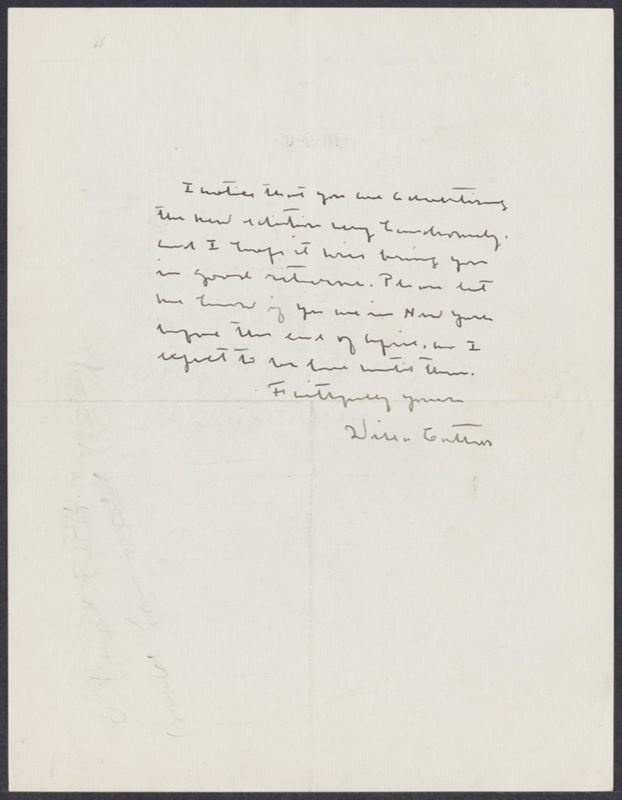 I notice that you are advertising
the new edition very handsomely,
and I hope it will bring you
in good returns. Please let
me know if you are in New York
before the end of April, as I
expect to be here until then.
Faithfully yours
Willa Cather